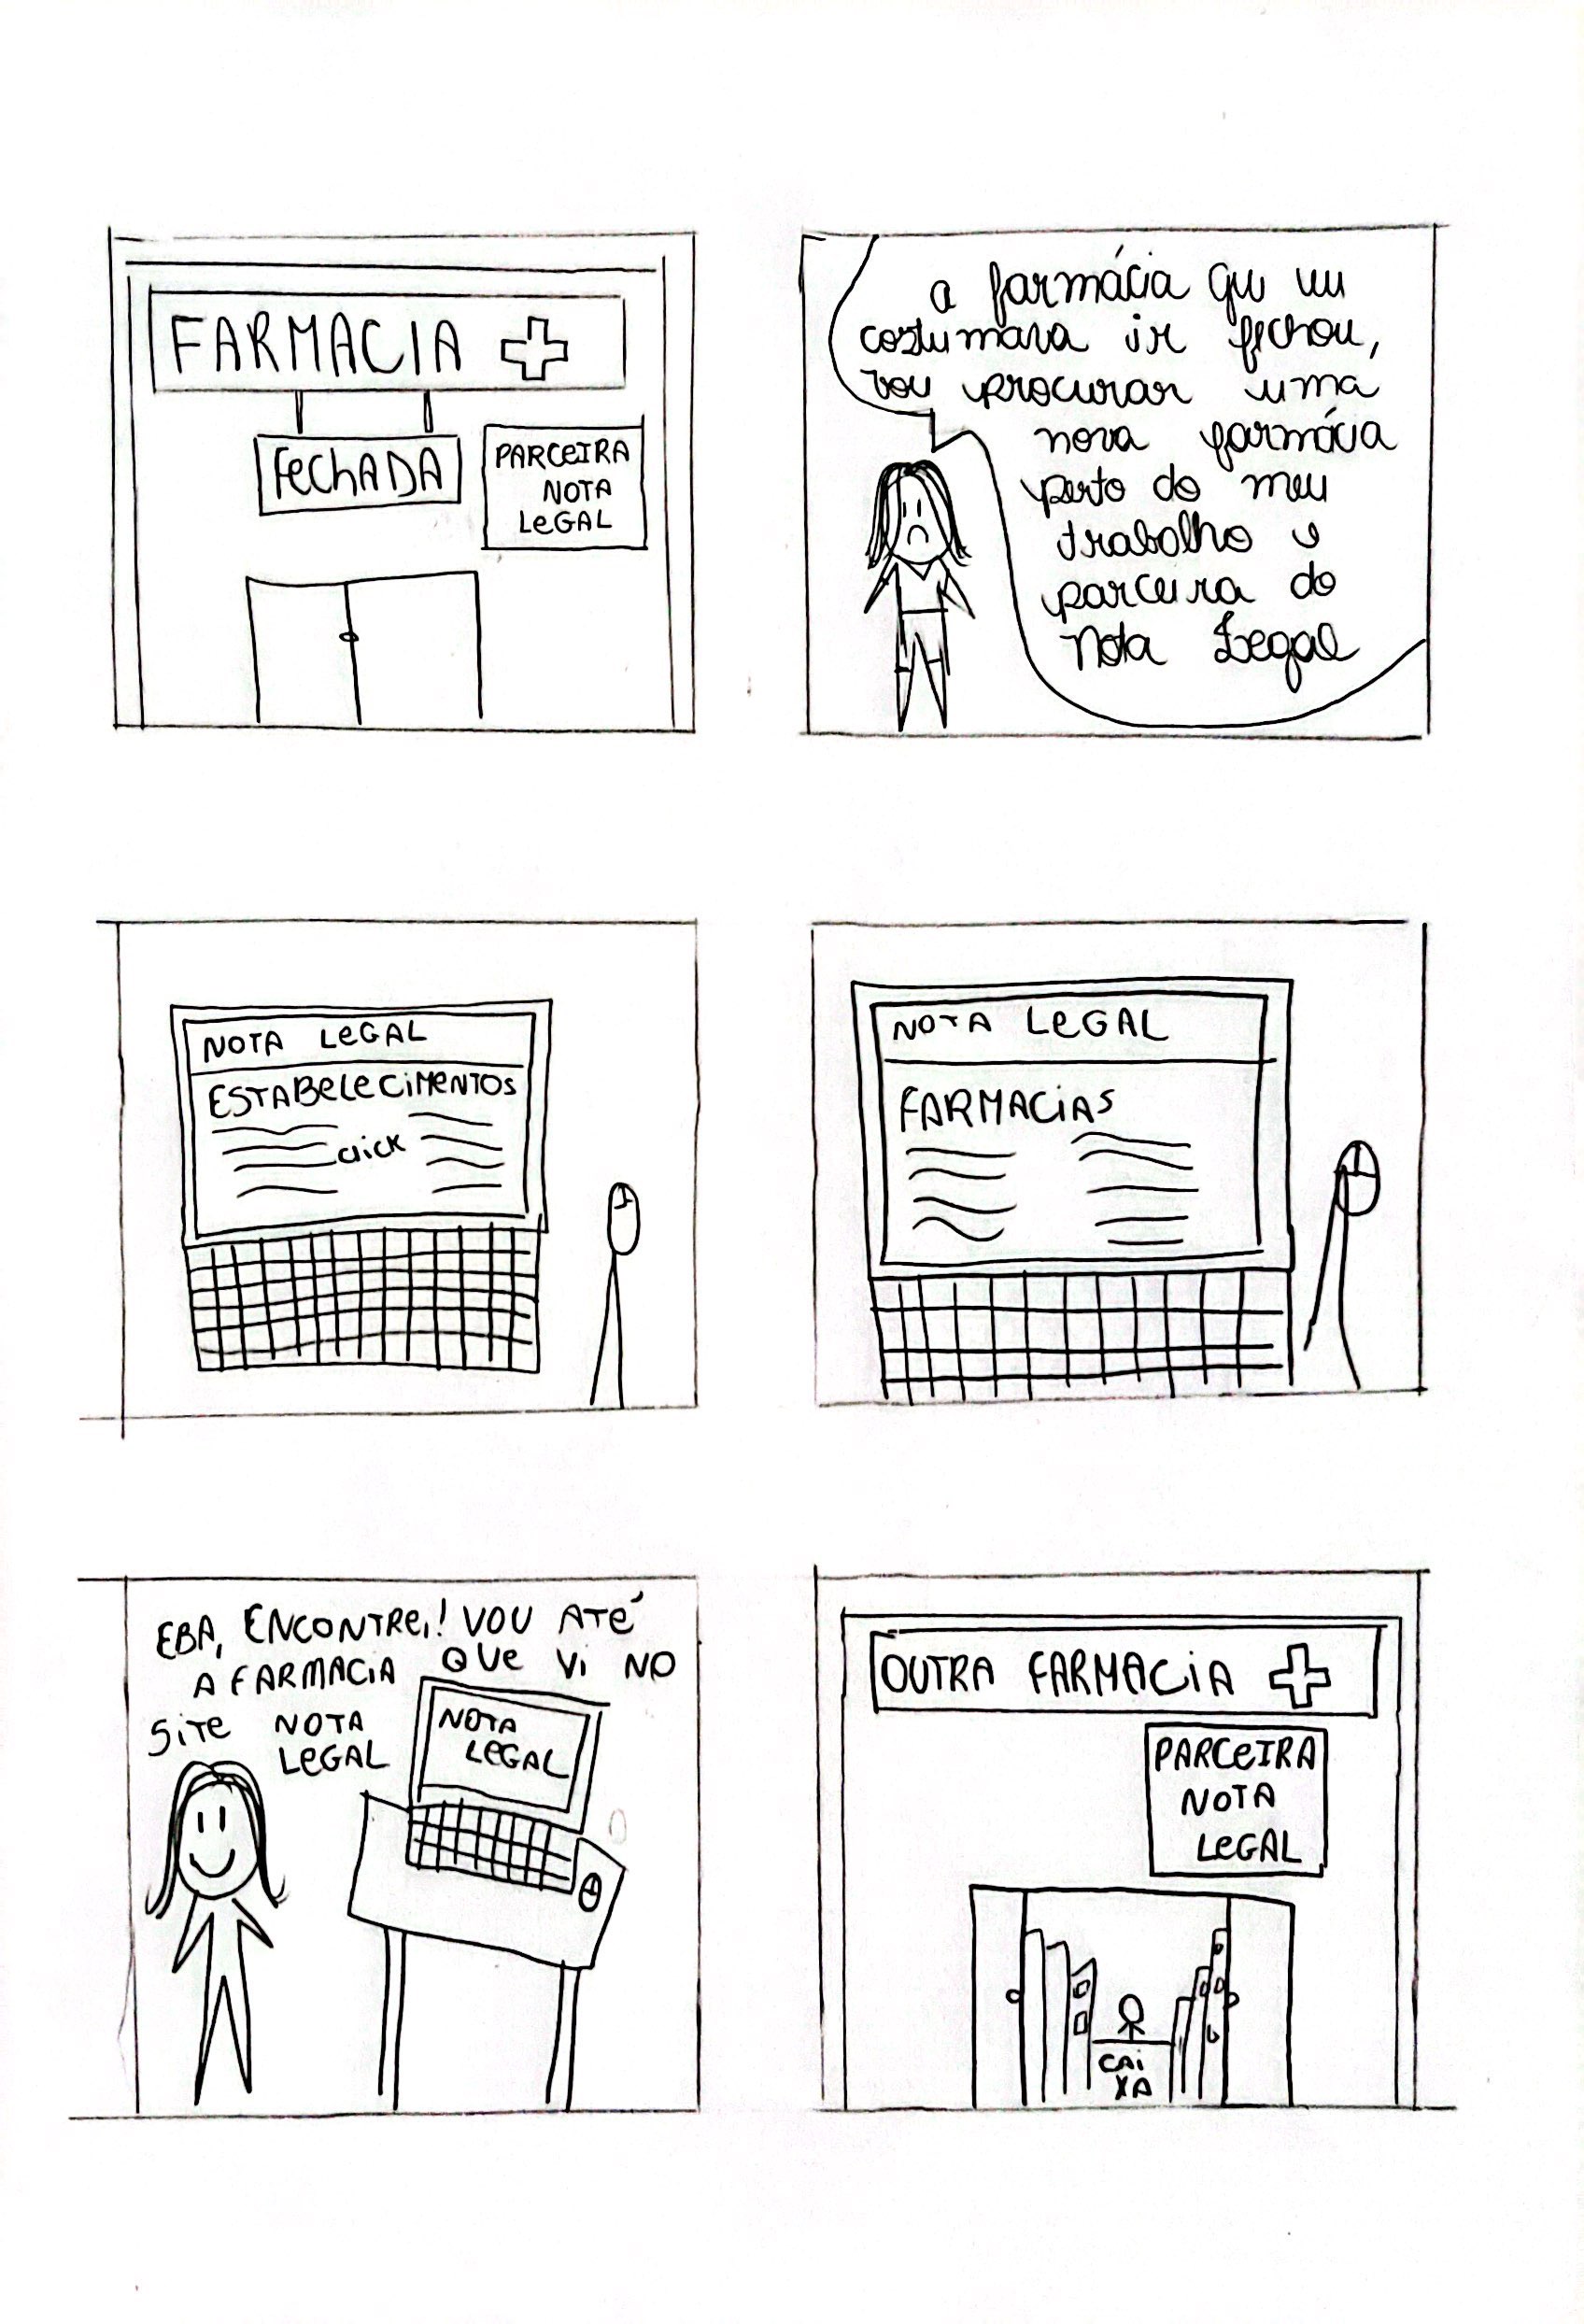 FARMACIA
FECHADA
PARCEIRA
NOTA
LEGAL
a farmácia que eu
costumava ir fechou,
vou procurar uma
nova farmácia
perto do meu
trabalho e
parceira do
Nota Legal
NOTA LEGAL
ESTABELECIMENTOS
click
NOTA LEGAL
FARMACIAS
EBA, ENCONTREI! VOU ATÉ
A FARMACIA QUE VI NO
SITE NOTA
LEGAL
NOTA
LEGAL
OUTRA FARMACIA
PARCEIRA
NOTA
LEGAL
CAI
XA